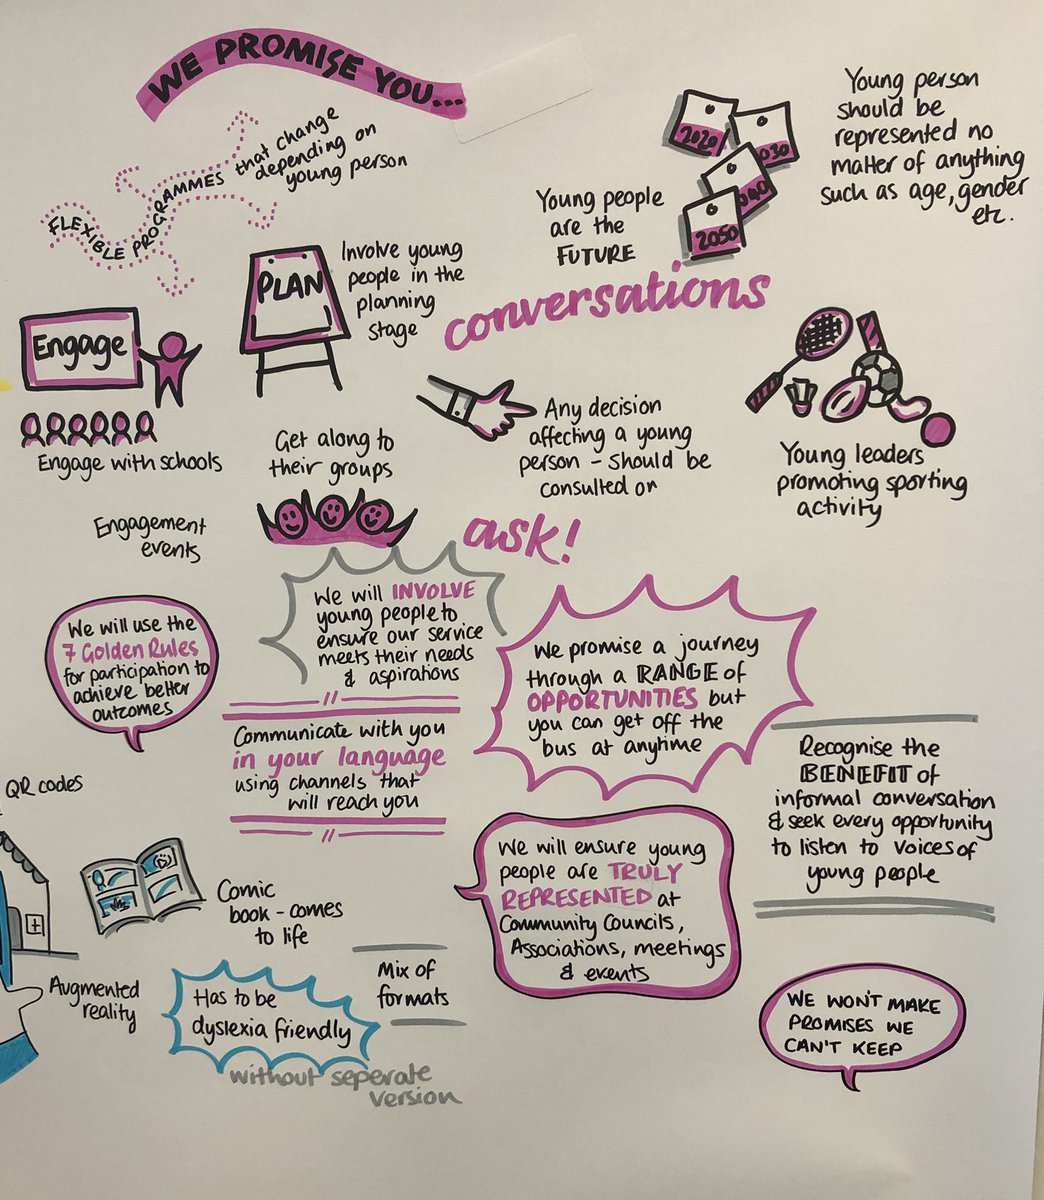 WE PROMISE YOU...
FLEXIBLE PROGRAMMES that change
depending on
young person
Young people
are the
FUTURE
2020
030
040
2050
Young person
should be
represented no
matter of anything
such as age, gender
etc.
PLAN
Involve young
people in the
planning
stage
conversations
Engage
Engage with schools
Get along to
their groups
Any decision
affecting a young
person - should be
consulted on
Young leaders
promoting sporting
activity
Engagement
events
ask!
We will use the
7 Golden Rules
for participation to
achieve better
outcomes
We will INVOLVE
young people to
ensure our service
meets their needs
& aspirations
We promise a journey
through a RANGE of
OPPORTUNITIES but
you can get off the
bus at anytime
Communicate with you
in your language
using channels that
will reach you
Recognise the
BENEFIT of
informal conversation
& seek every opportunity
to listen to voices of
young people
QR codes
We will ensure young
people are TRULY
REPRESENTED at
Community Councils,
Associations, meetings
& events
Comic
book - comes
to life
Augmented
reality
Has to be
dyslexia friendly
without seperate
version
Mix of
formats
WE WON'T MAKE
PROMISES WE
CAN'T KEEP